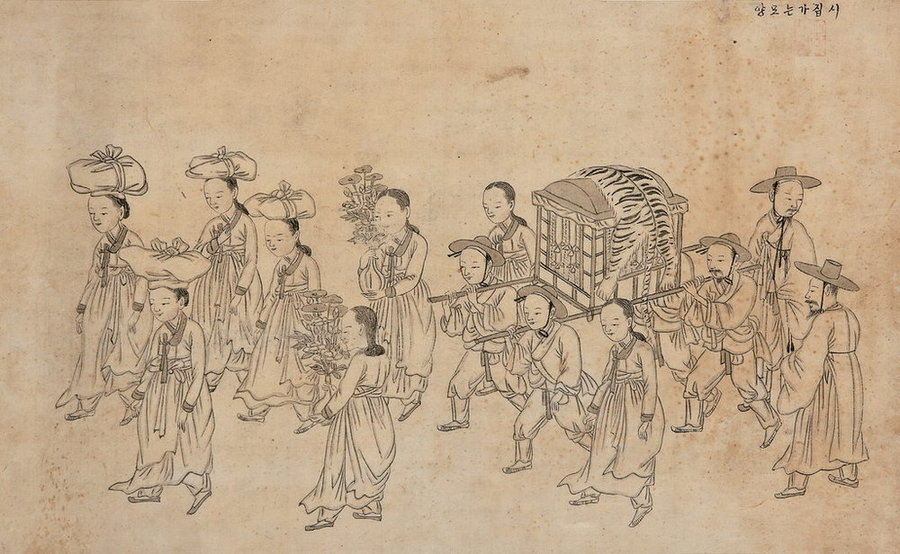 시집가는모양